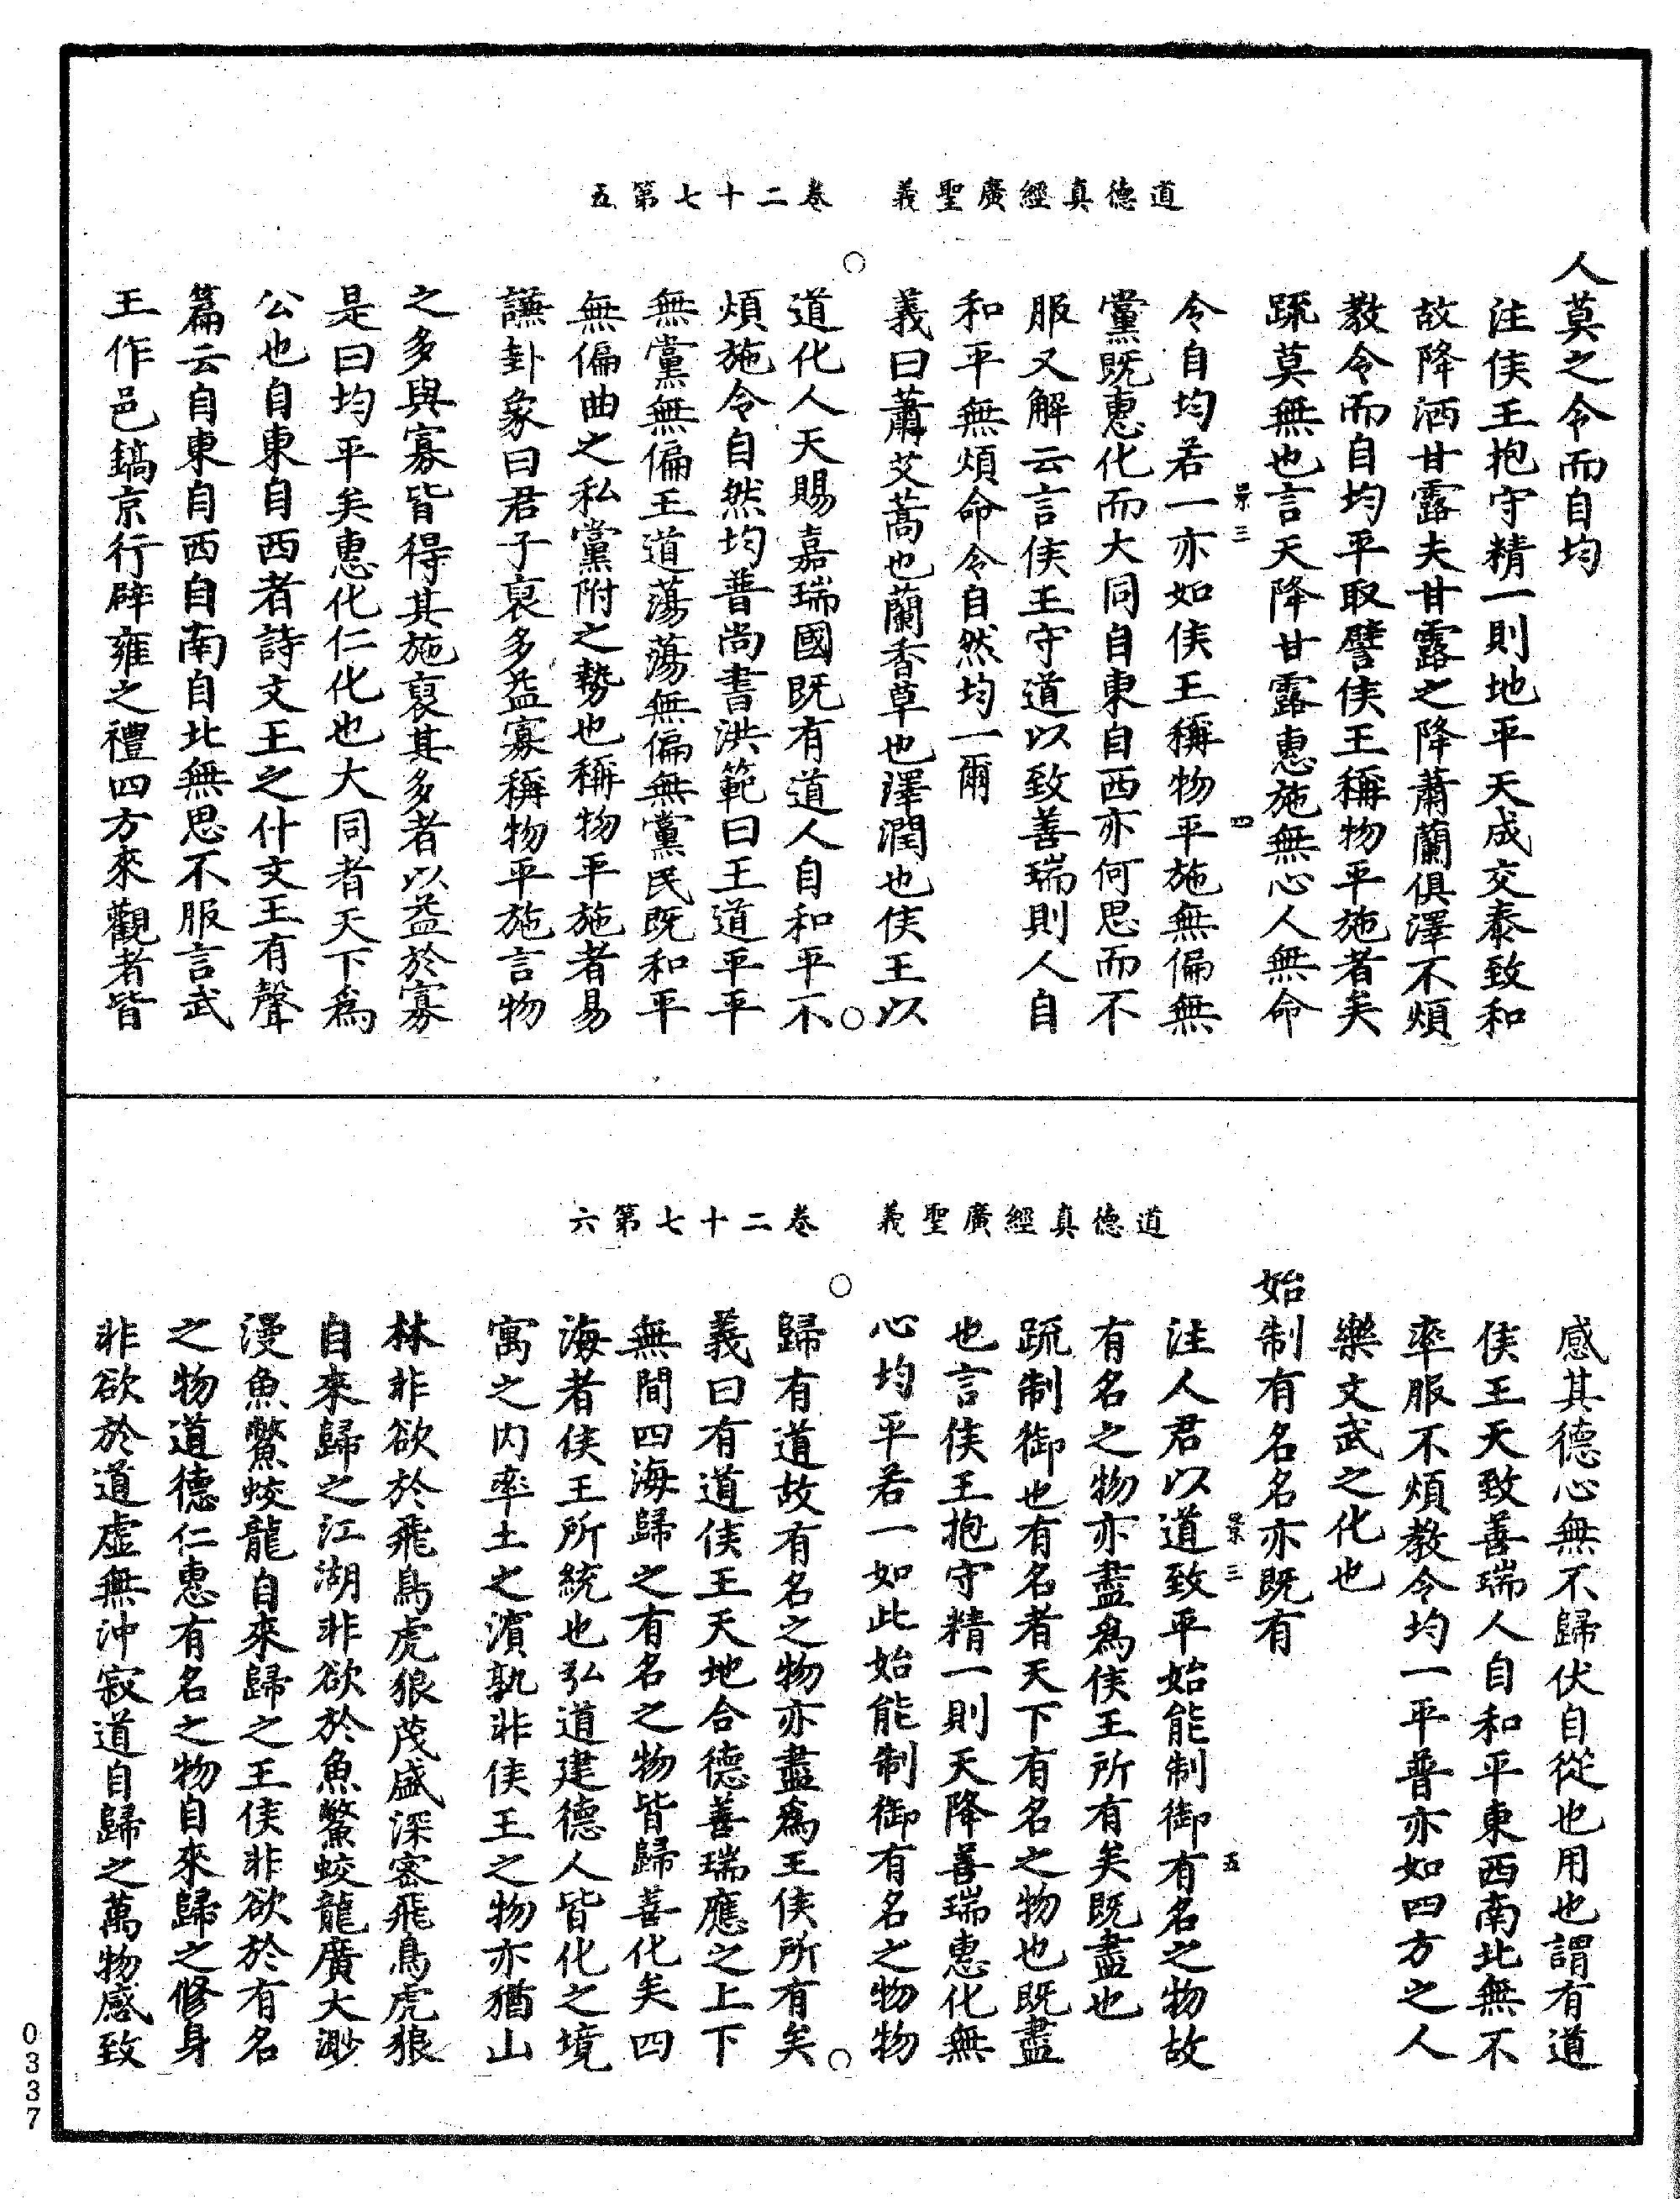 道德真經廣聖義　卷二十七第五
人莫之令而自均
注侯王抱守精一則地平天成交泰致和
故降洒甘露夫甘露之降蕭蘭俱澤不煩
教令而自均平取譬侯王稱物平施者矣
疏莫無也言天降甘露惠施無心人無命
景三　四
令自均若一亦如侯王稱物平施無偏無
黨既惠化而大同自東自西亦何思而不
服又解云言侯王守道以致善瑞則人自
和平無煩命令自然均一爾
義曰蕭艾蒿也蘭香草也澤潤也侯王以
道化人天賜嘉瑞國既有道人自和平不
煩施令自然均普尚書洪範曰王道平平
無黨無偏王道蕩蕩無偏無黨民既和平
無偏曲之私黨附之勢也稱物平施者易
謙卦象曰君子裒多益寡稱物平施言物
之多與寡皆得其施裒其多者以益於寡
是曰均平矣惠化仁化也大同者天下為
公也自東自西者詩文王之什文王有聲
篇云自東自西自南自北無思不服言武
王作邑鎬京行辟雍之禮四方來觀者皆
道德真經廣聖義　卷二十七第六
感其德心無不歸伏自從也用也謂有道
侯王天致善瑞人自和平東西南北無不
率服不煩教令均一平普亦如四方之人
樂文武之化也
始制有名名亦既有
景三　五
注人君以道致平始能制御有名之物故
有名之物亦盡為侯王所有矣既盡也
疏制御也有名者天下有名之物也既盡
也言侯王抱守精一則天降善瑞惠化無
心均平若一如此始能制御有名之物物
歸有道故有名之物亦盡為王侯所有矣
義曰有道侯王天地合德善瑞應之上下
無間四海歸之有名之物皆歸善化矣四
海者侯王所統也弘道建德人皆化之境
寓之內率土之濱孰非侯王之物亦猶山
林非欲於飛鳥虎狼茂盛深密飛鳥虎狼
自來歸之江湖非欲於魚鱉蛟龍廣大渺
漫魚鱉蛟龍自來歸之王侯非欲於有名
之物道德仁惠有名之物自來歸之修身
非欲於道虛無沖寂道自歸之萬物感致
0337